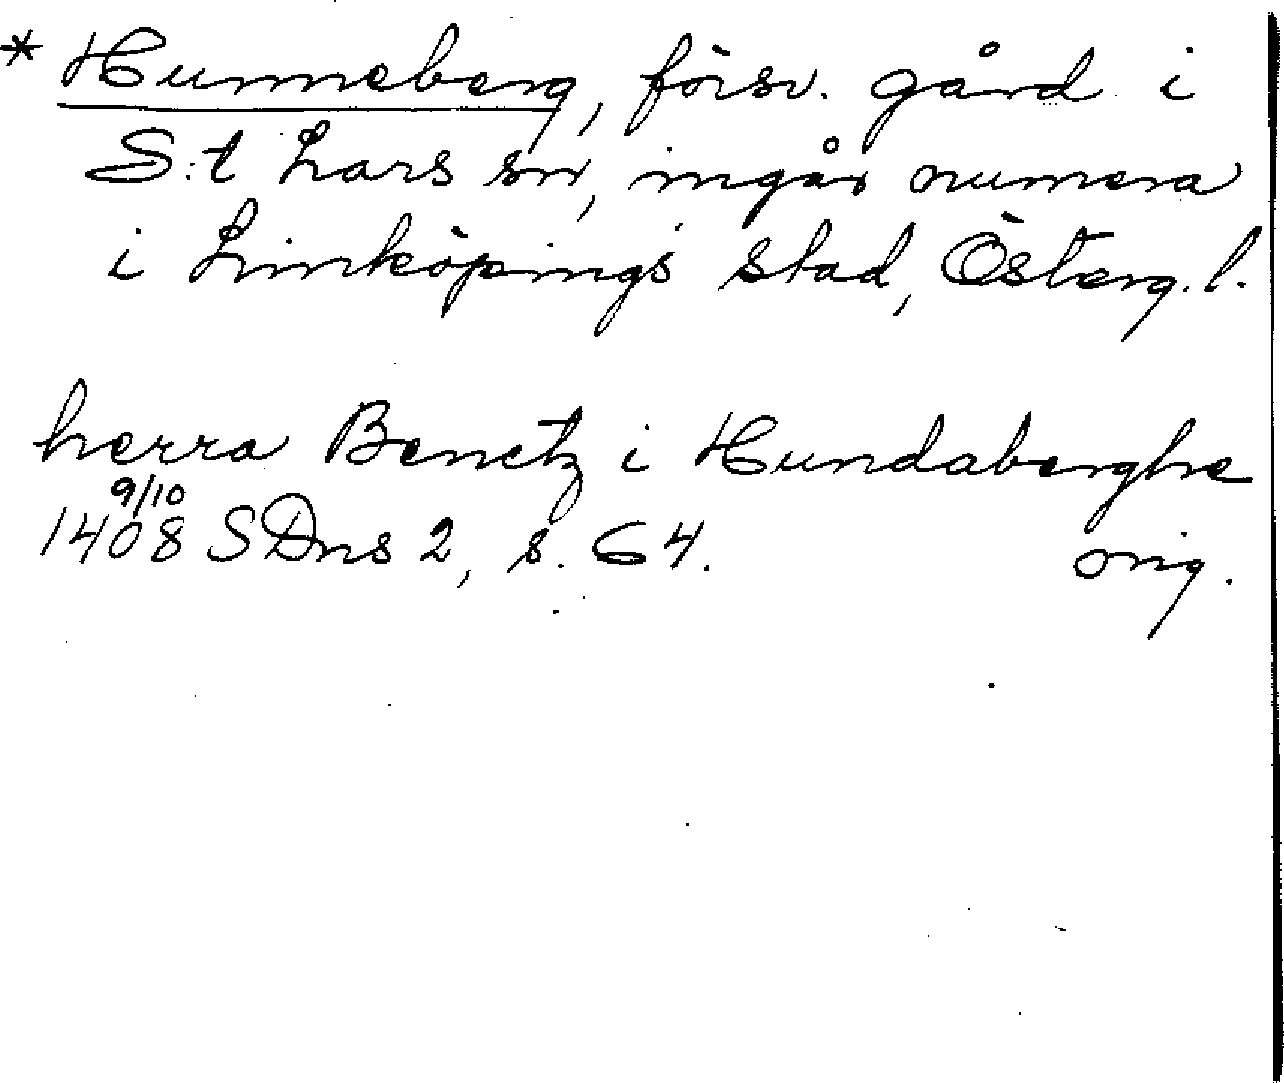 * Hunneberg, försv. gård i
S:t Lars sn, ingår numera
i Linköpings stad, Österg. l.
herra Benctz i Hundaberghe
9/10
1408 SDns 2, s. 64. orig.